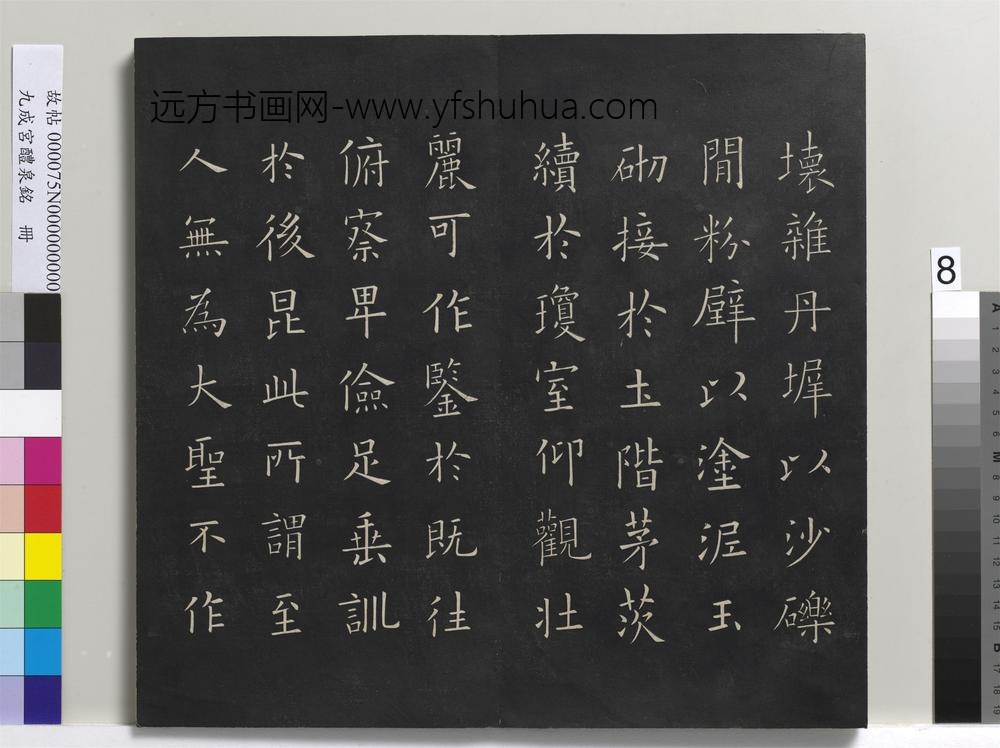 远方书画网-www.yfshuhua.com
壞雜丹墀以沙礫
閒粉壁以塗泥玉
砌接於土階茅茨
續於瓊室仰觀壯
麗可作鑒於既往
俯察卑儉足垂訓
於後昆此所謂至
人無為大聖不作
故帖 000075N000000000
九成宮醴泉銘 冊
8